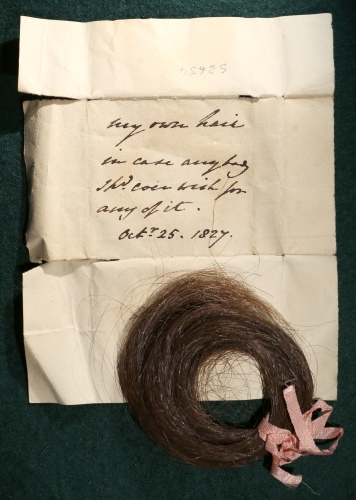 52657
my own hair
in case anybody
shd. ever wish for
any of it.
Octr. 25. 1827.